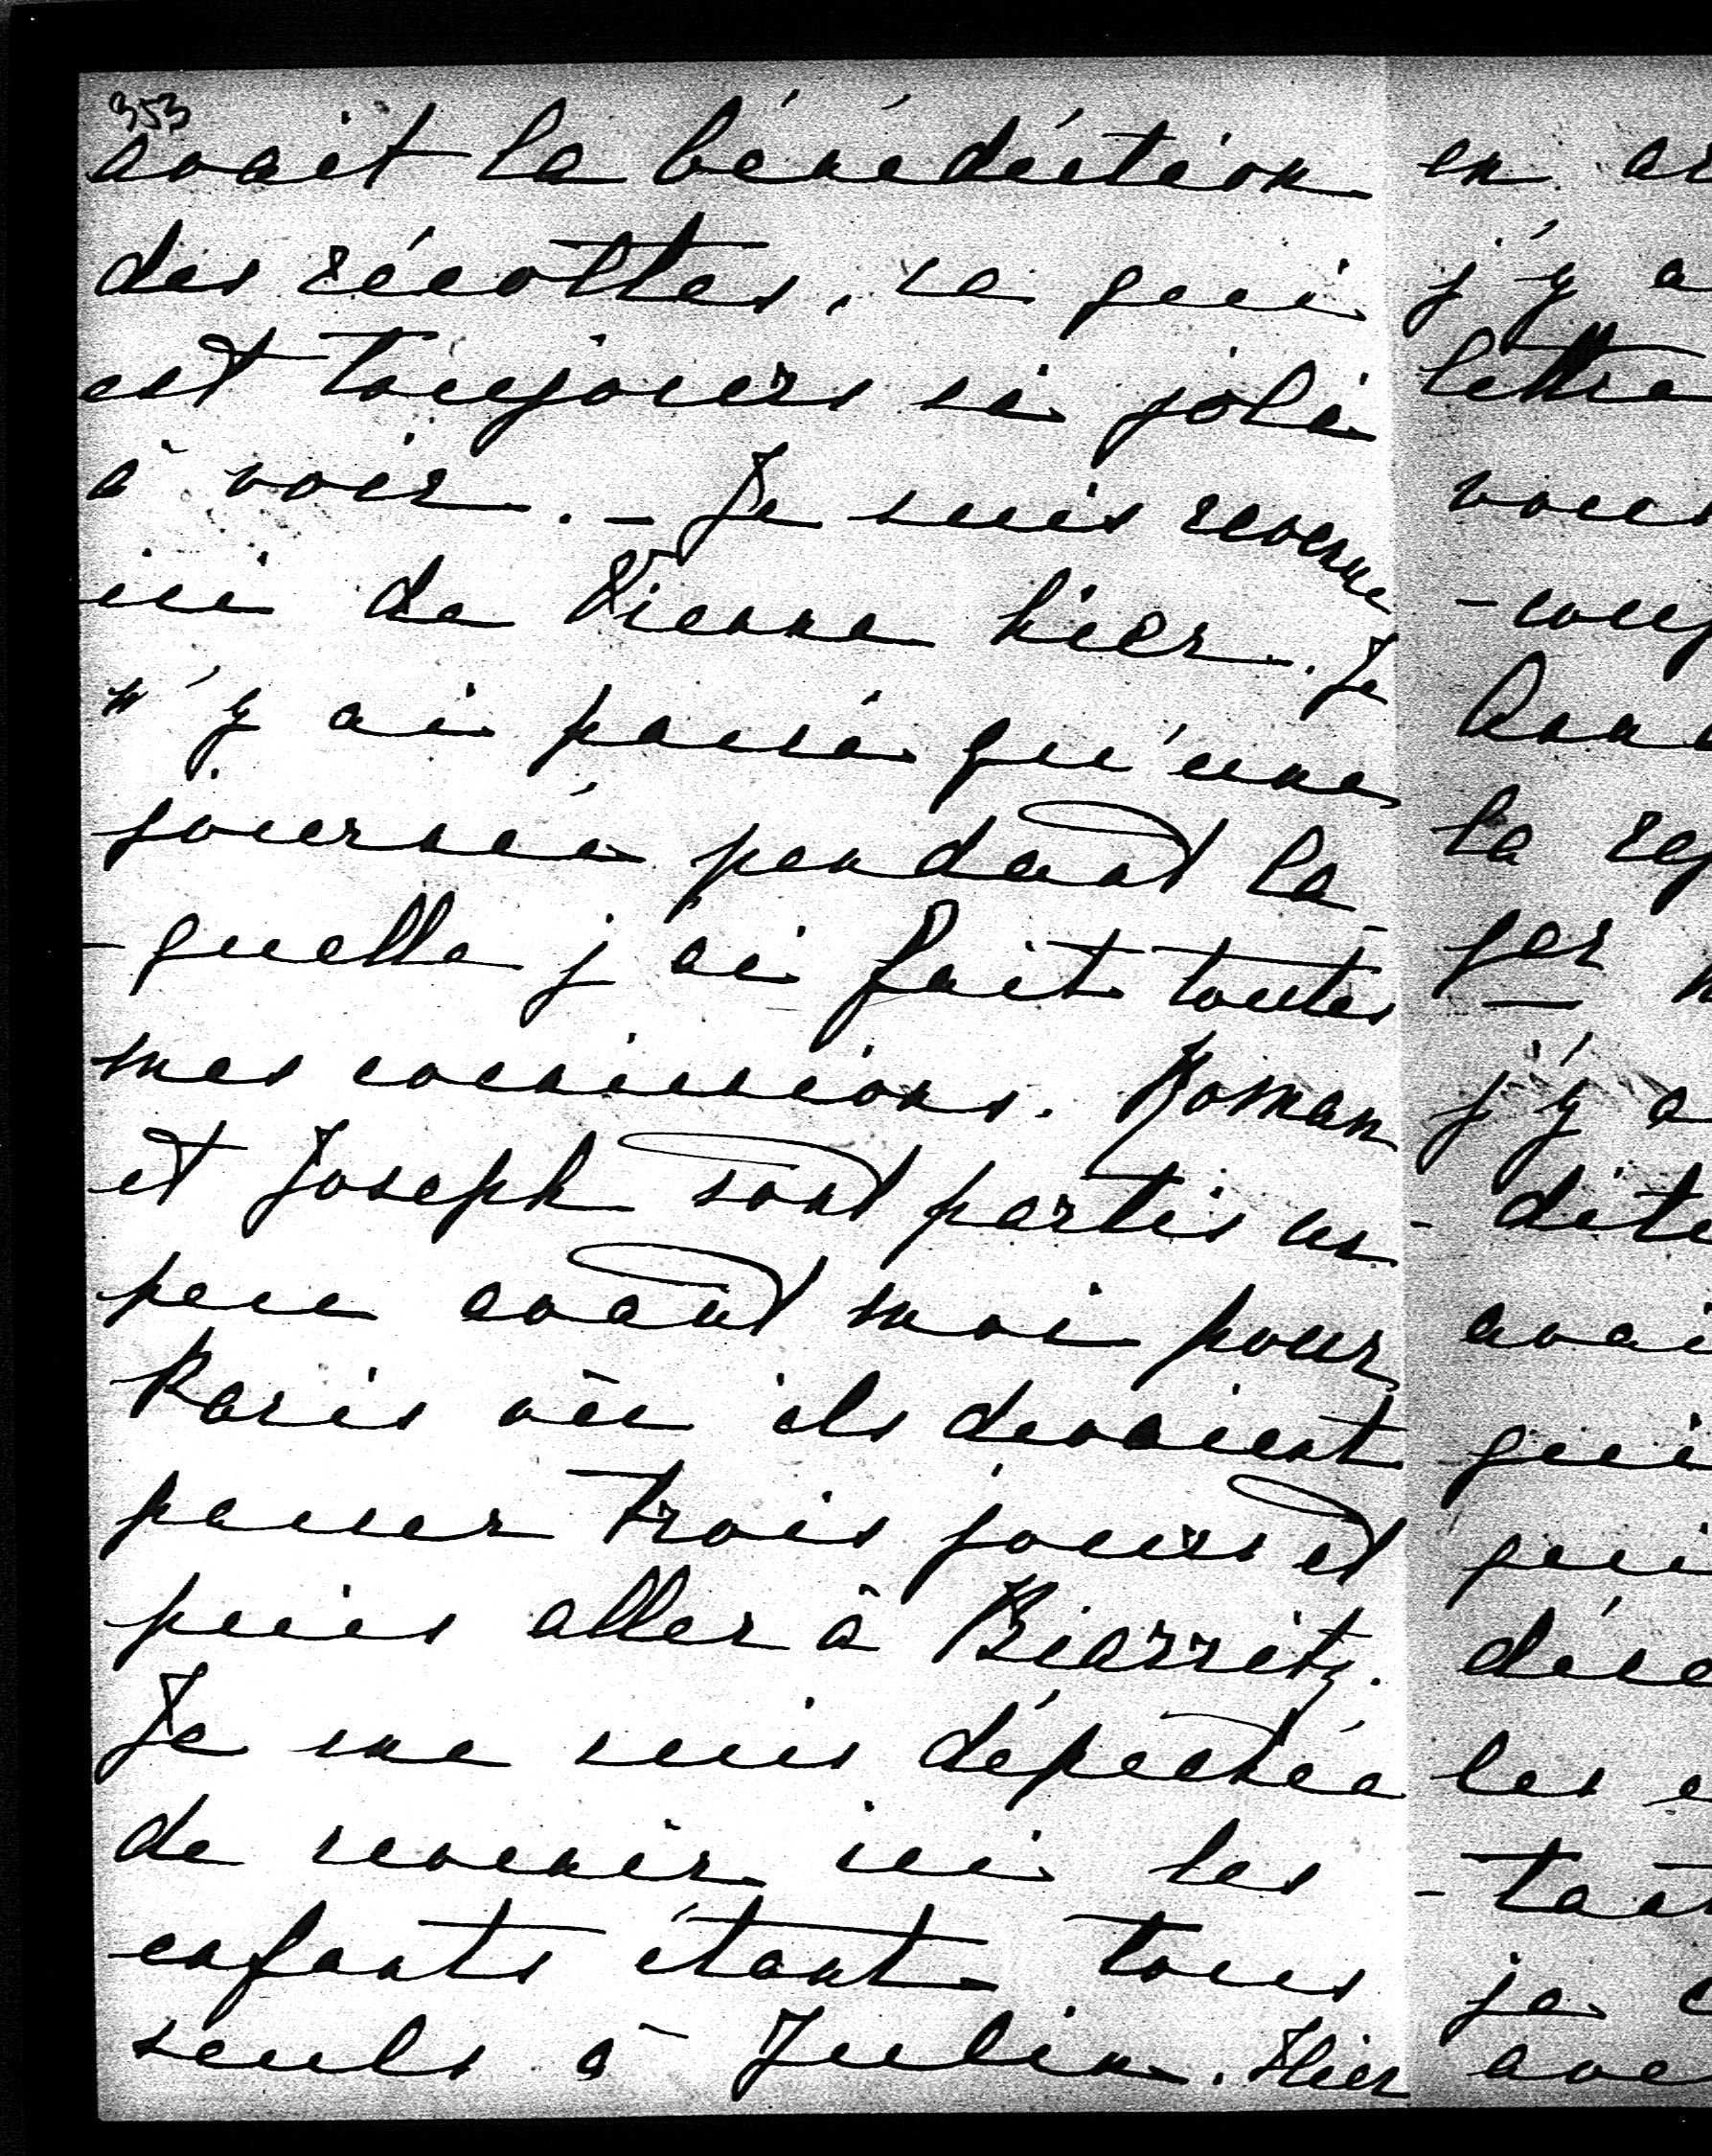 353
avait la bénédiction
des récoltes, ce qui
est toujours si joli
à voir. - Je suis revenue
ici de Vienne hier. Je
n'y ai passé qu'une
journée pendant la
-quelle j'ai fait toutes
mes commissions. Roman
et Joseph sont partis un
peu avant moi pour
Paris où ils devaient
passer trois jours et
puis aller à Biarritz.
Je me suis dépêchée
de revenir ici les
enfants étant tous
seuls à Julin. Hier
en
j'y a
lettre
vous
la
j'y a
qui
qui
les
je